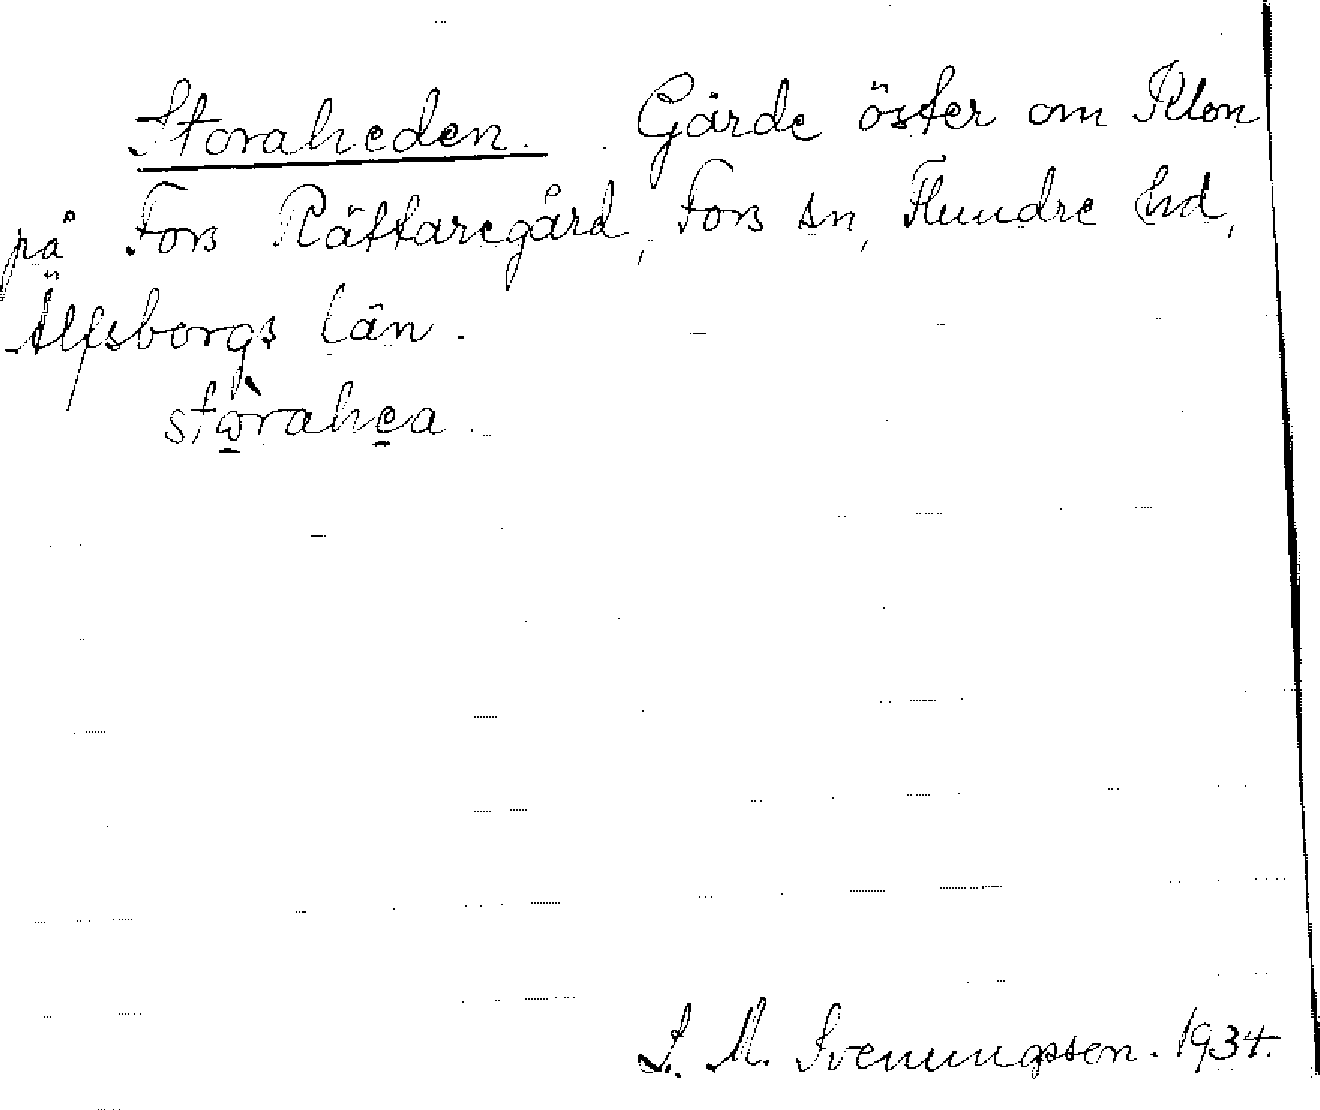 Storaheden. Gärde öster om Klon
på Fors Rättaregård, Fors sn, Flundre hd,
Älfsborgs län.
stòrahea.
S. M. Svenungsson. 1934.